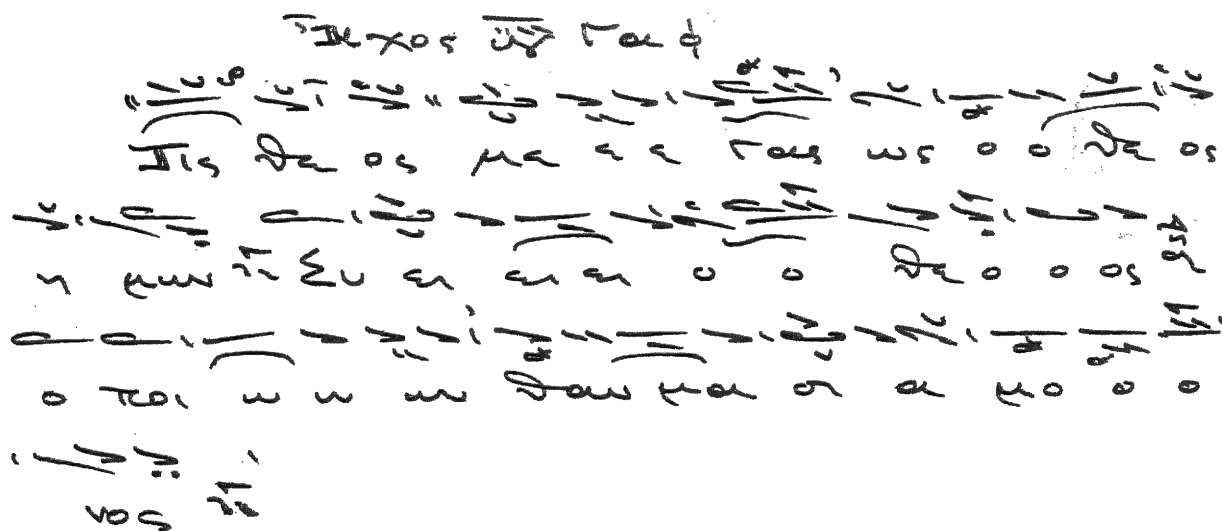 Ἦχος Γα
Τις Θε ος με ε ε γας ως ο ο Θε ος
η μων Συ ει ει ει ο ο Θε ο ο ος
ο ποι ω ω ων θαυ μα σι α μο ο ο
νος